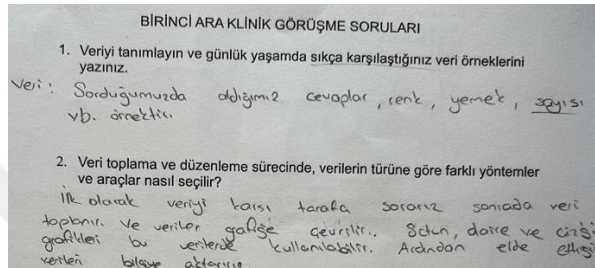 BİRİNCİ ARA KLİNİK GÖRÜŞME SORULARI
1. Veriyi tanımlayın ve günlük yaşamda sıkça karşılaştığınız veri örneklerini
yazınız.
Veri : Sorduğumuzda aldığımız cevaplar, renk, yemek, sayısı
vb. örnektir.
2. Veri toplama ve düzenleme sürecinde, verilerin türüne göre farklı yöntemler
ve araçlar nasıl seçilir?
İlk olarak veriyi karşı tarafa sorarız sonrada veri
toplanır. Ve veriler grafiğe çevrilir. Sütun, daire ve çizgi
grafikleri bu verilerde kullanılabilir. Ardından elde ettiği
verileri bilgiye aktarırız